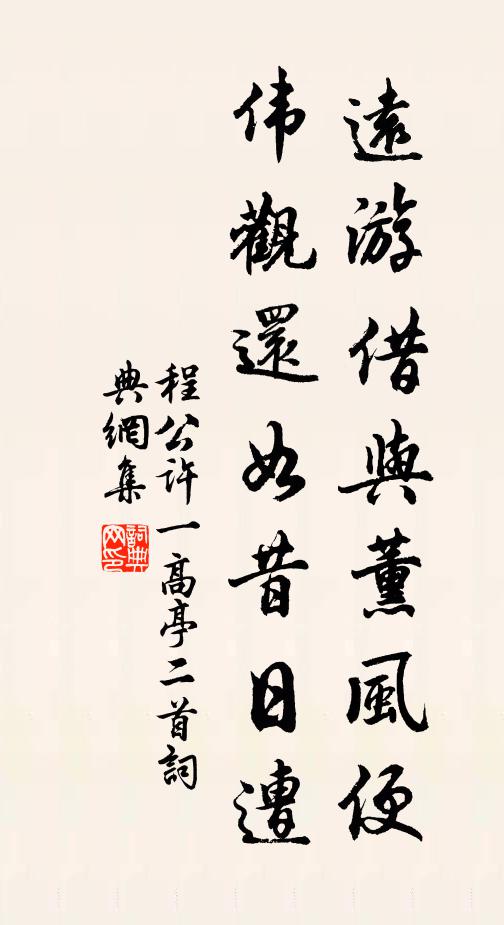 遠游借與薰風便
伟觀還如昔日遭
程公許一高亭二首詞
典網集
詞典網印